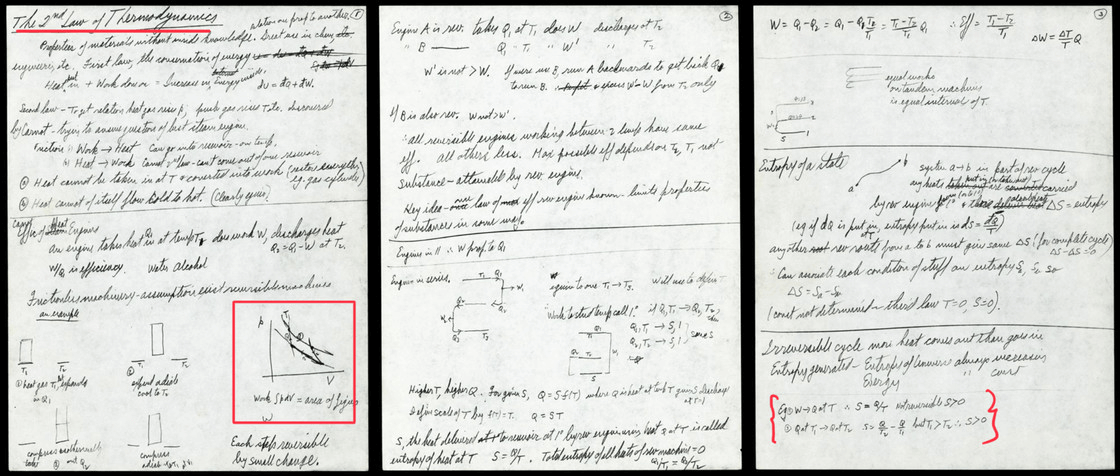 The 2nd Law of Thermodynamics
①
relation on prop to another,
Properties of materials without inside knowledge. Great use in chem,
engineers, etc. First law, the conservation of energy
Heat put in + Work done on = Increase in Energy inside. dU = dQ + dW.
Second law -
by Carnot - trying to answer question of best steam engine.
Friction: Work → Heat Can go into reservoir - on temp.
Heat → Work Cannot
ⓐ Heat cannot be taken in at T + converted into work (restore everything
eg. gas cylinder)
ⓑ Heat cannot of itself flow cold to hot. (Clearly equiv.)
Engines
An engine takes heat Q1 at temp T1 does work W, discharges heat
Q2 = Q1 - W at T2.
W/Q1 is efficiency. Water alcohol
Frictionless machinery - assumption exist reversible machines
an example
T1
T2
① heat gas T1, expands
in Q1
②
expand adiab
cool to T2
compress isothermally
out Q2
compress
P
V
Work ∫pdV = area of figure
W
Each step reversible
by small change.
②
Engine A is rev. takes Q1 at T1 does W discharges at T2
" B —— Q1 T1 " W' " T2
W' is not > W. If were un B, run A backwards to get back Q1
to run B. excess W'-W from T2 only
If B is also rev. W not > W'.
∴ all reversible engines working between 2 temps have same
eff. All others less. Max possible eff depends on T2, T1 not
substance - attainable by rev engine.
Key idea - law of eff rev engine known - limits properties
of substances in some way.
Engines in // ∴ W prop to Q1
Engines in series.
T1
Q1
W1
Q2
Q3
W2
again to one T1 → T3. Will use to define
Work to stand temp call 1° if Q1 T1 → Q2 T2
Q1, T1 → S, 1
Q2 T2 → S, 1
same S
Q1
Q2 T2
W1
S
Higher T, higher Q. For given S, Q = S f(T) where Q is heat at temp T given S discharge
at T=1
Define scale of T by f(T) = T. Q = ST
S, the heat delivered at 1° to reservoir at 1° by rev engine using heat Q at T is called
entropy of heat at T S = Q/T. Total entropy of all heats of rev machine = 0
Q1/T1 = Q2/T2
③
W = Q1 - Q2 = Q1 - Q1 T2/T1 = (T1-T2)/T1 Q1 ∴ Eff = (T1-T2)/T1
ΔW = ΔT/T Q
equal works
on tandem machines
is equal interval of T.
S
1
Entropy of a state
a
b
system a→b in part of rev cycle
any heats put in are carried
by rev engine ΔS = entropy
(eg if dQ is put in, entropy put in is dS = dQ/T)
any other rev route from a to b must give same ΔS (for complete cycle
ΔS - ΔS = 0)
∴ Can associate each condition of stuff an entropy so
ΔS = Sb - Sa
(const not determined - third law T=0, S=0).
Irreversible cycle more heat comes out than goes in
Entropy generated - Entropy of universe always increases
Energy " " const
Eg ① W → Q at T ∴ S = Q/T not reversible S>0
② Q at T1 → Q at T2 S = Q/T2 - Q/T1 but T1 > T2 ∴ S>0